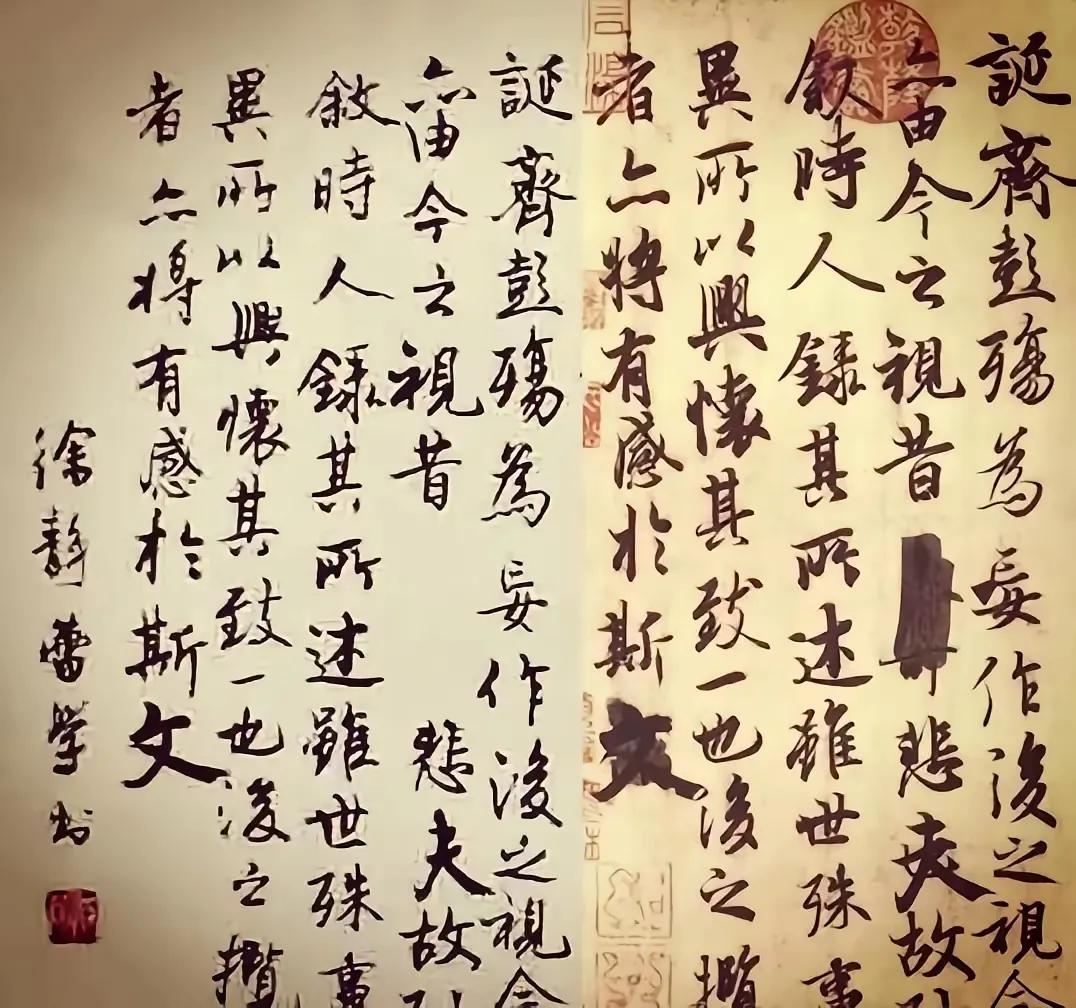 誕齊彭殤為妄作後之視今
亦由今之視昔悲夫故
敘時人錄其所述雖世殊事
異所以興懷其致一也後之攬
者亦將有感於斯文
誕齊彭殤為妄作後之視今
亦由今之視昔悲夫故
敘時人錄其所述雖世殊事
異所以興懷其致一也後之攬
者亦將有感於斯文
徐靜蕾學書